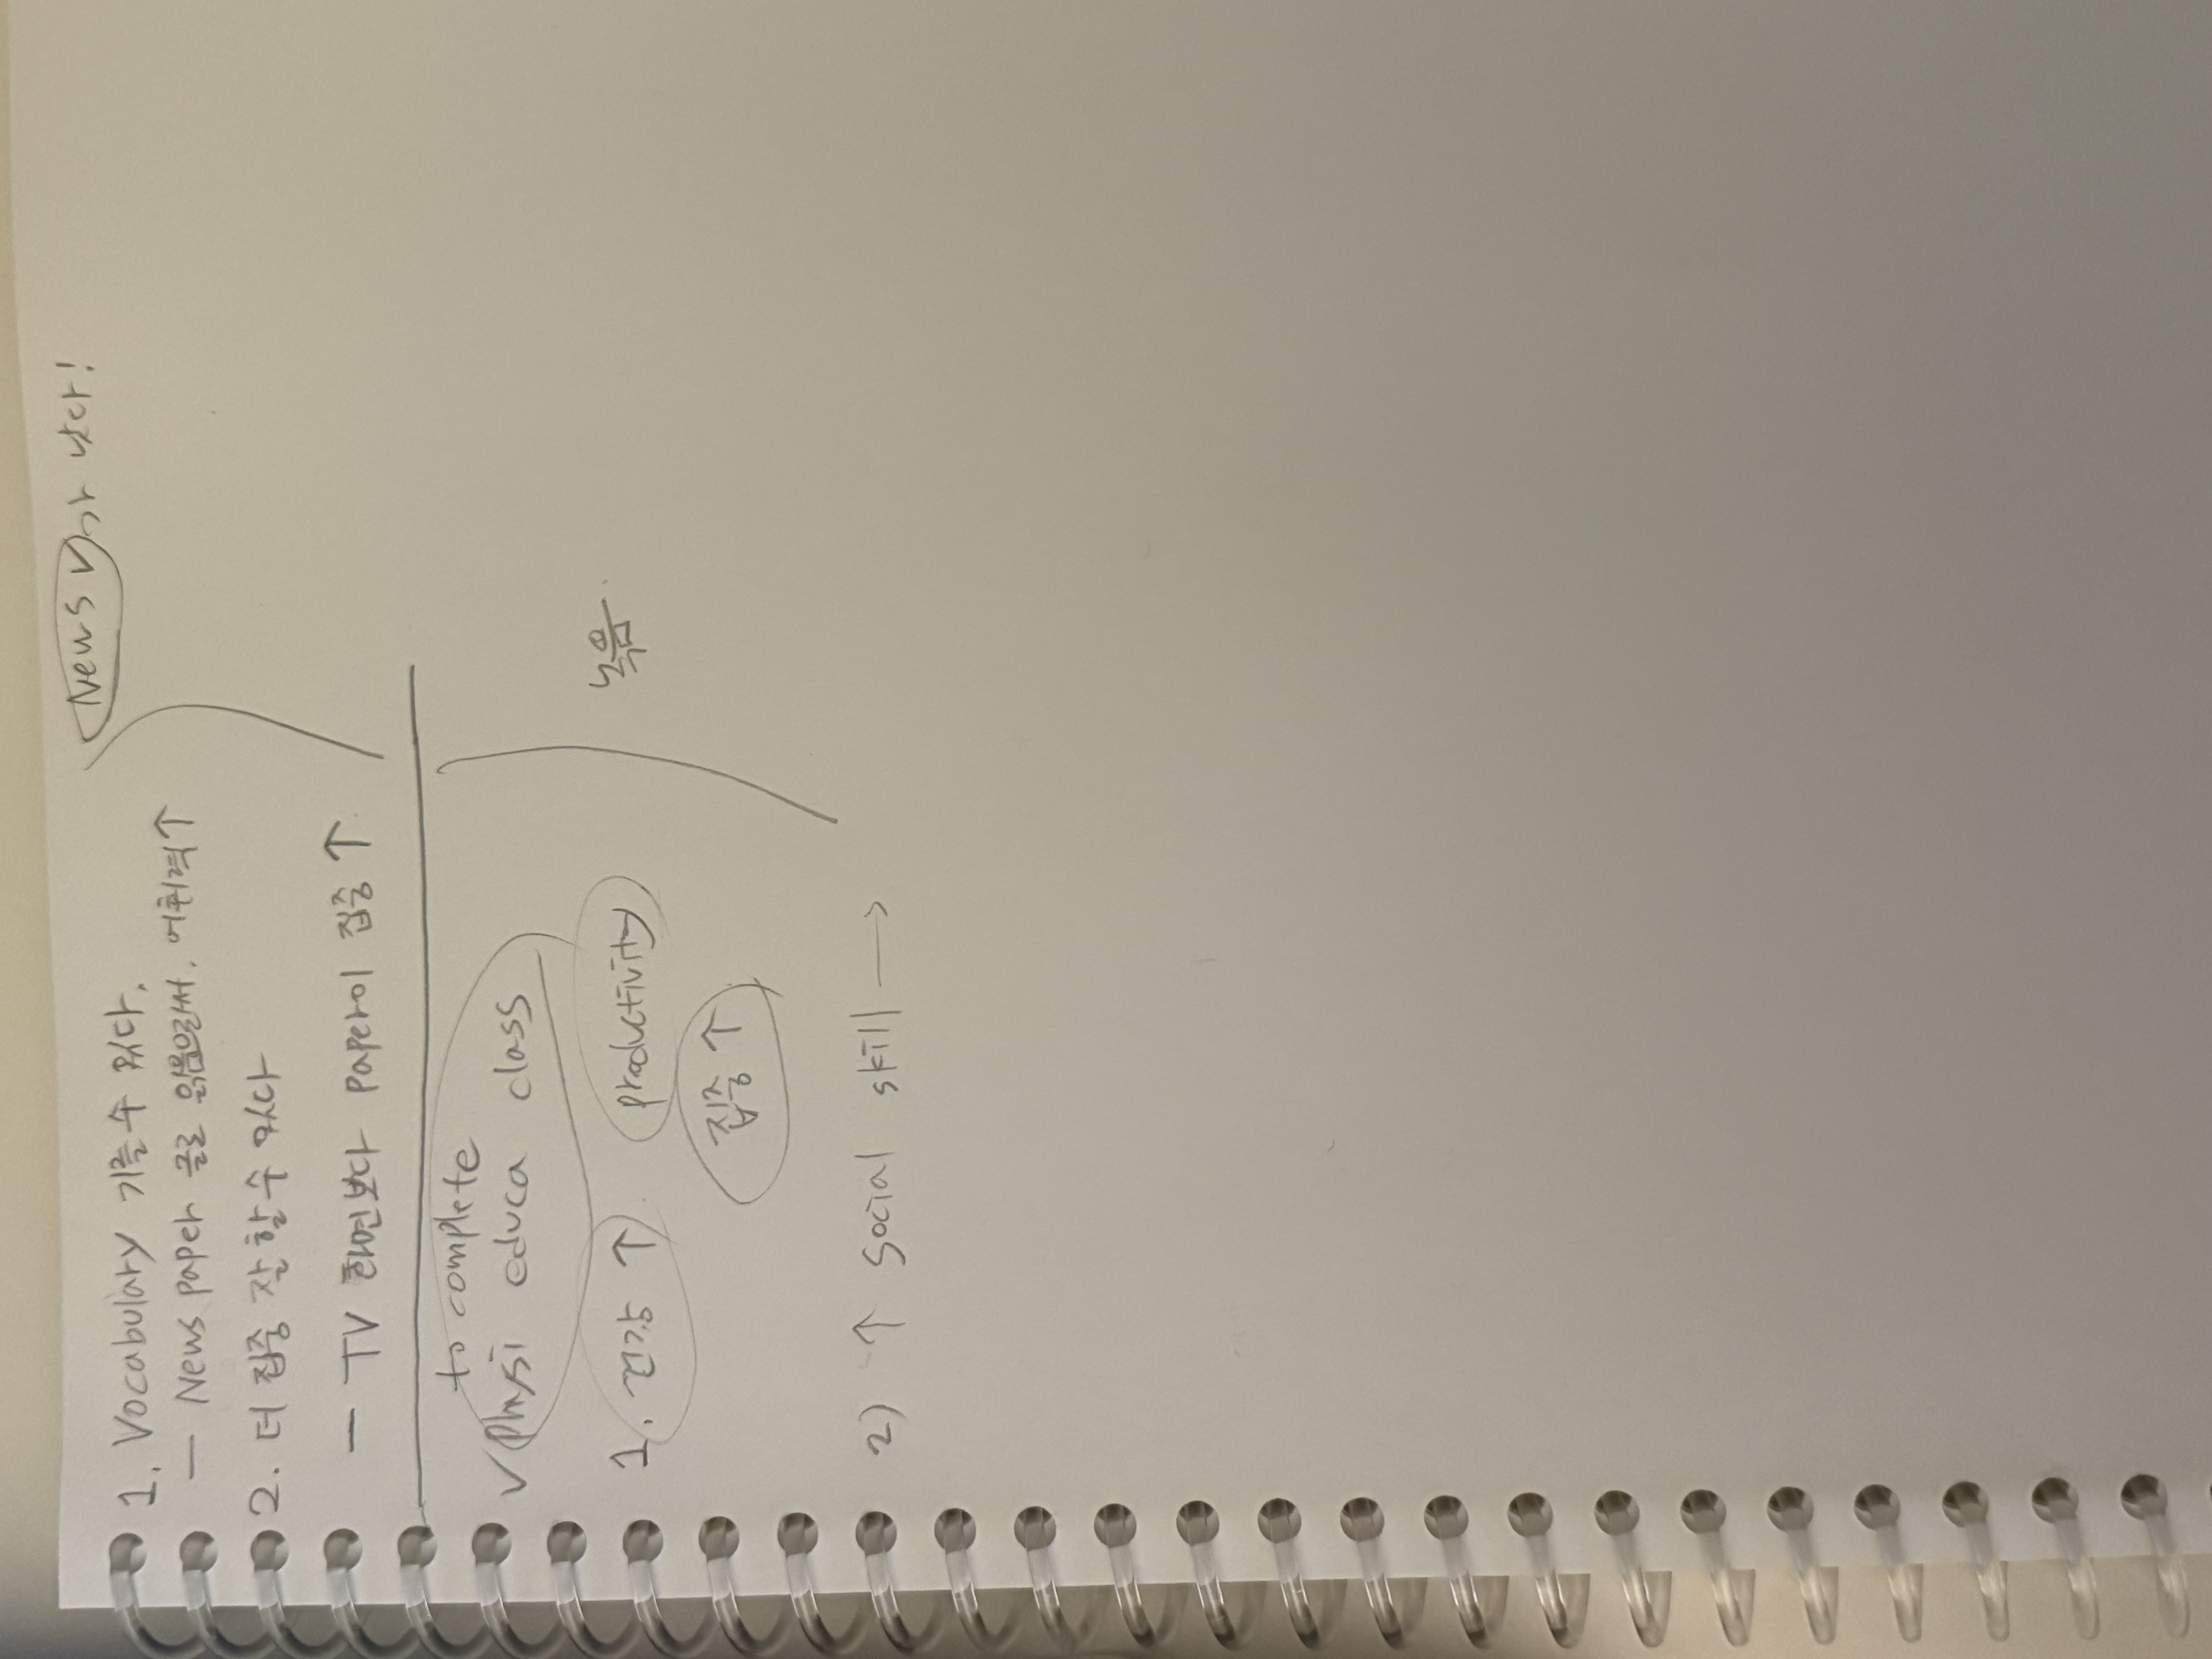 News가 낫다!
1. Vocabulary 기를수 있다.
— News paper 글로 읽음으로써, 어휘력↑
2. 더 집중 잘 할 수 있다
— TV 화면보다 paper이 집중 ↑
to complete
✓ Physi educa class
1. 건강 ↑ productivity
집중 ↑
녹음
2) ↑ social skill →